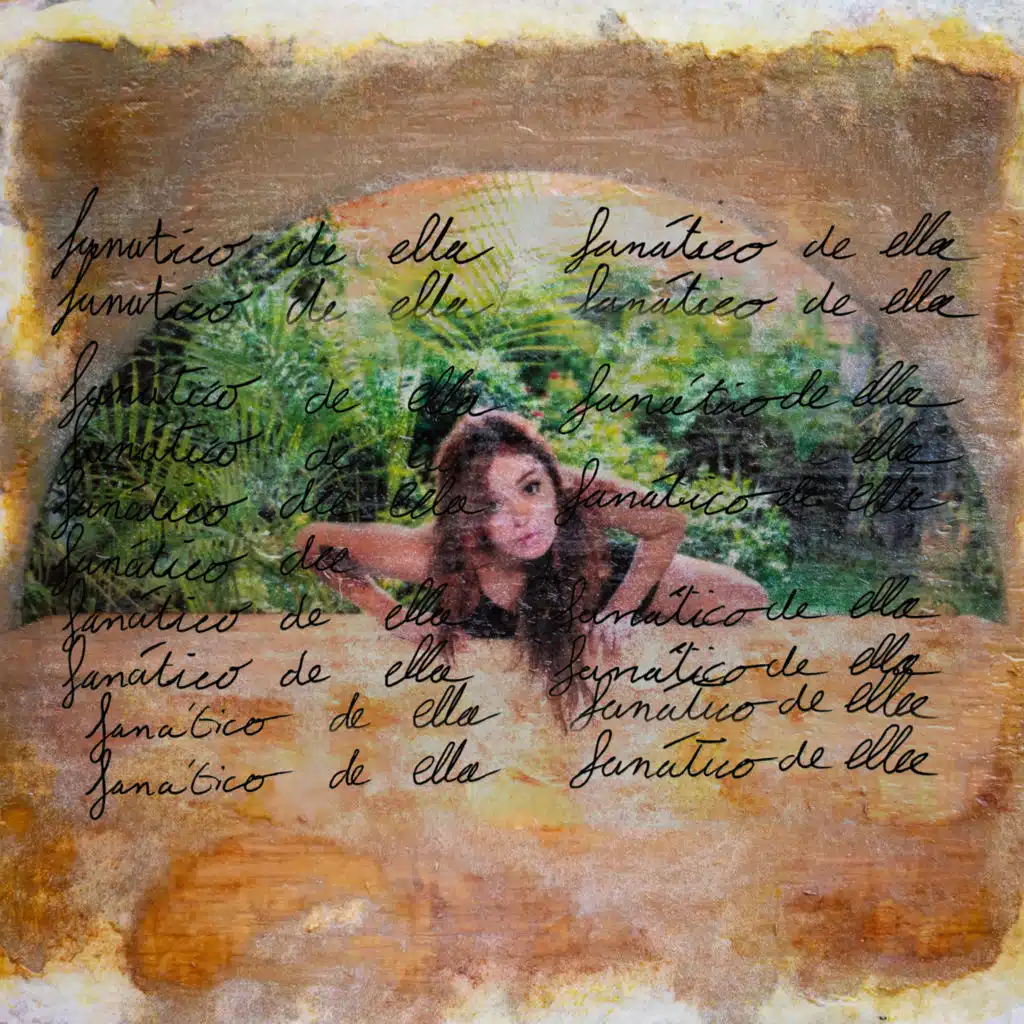 fanatico de ella fanático de ella
fanatico de ella fanático de ella
fanático de ella fanático de ella
fanático de ella
fanático de ella fanático de ella
fanático de
fanático de ella fanático de ella
fanático de ella fanático de ella
fanático de ella fanático de ella
fanático de ella fanático de ella